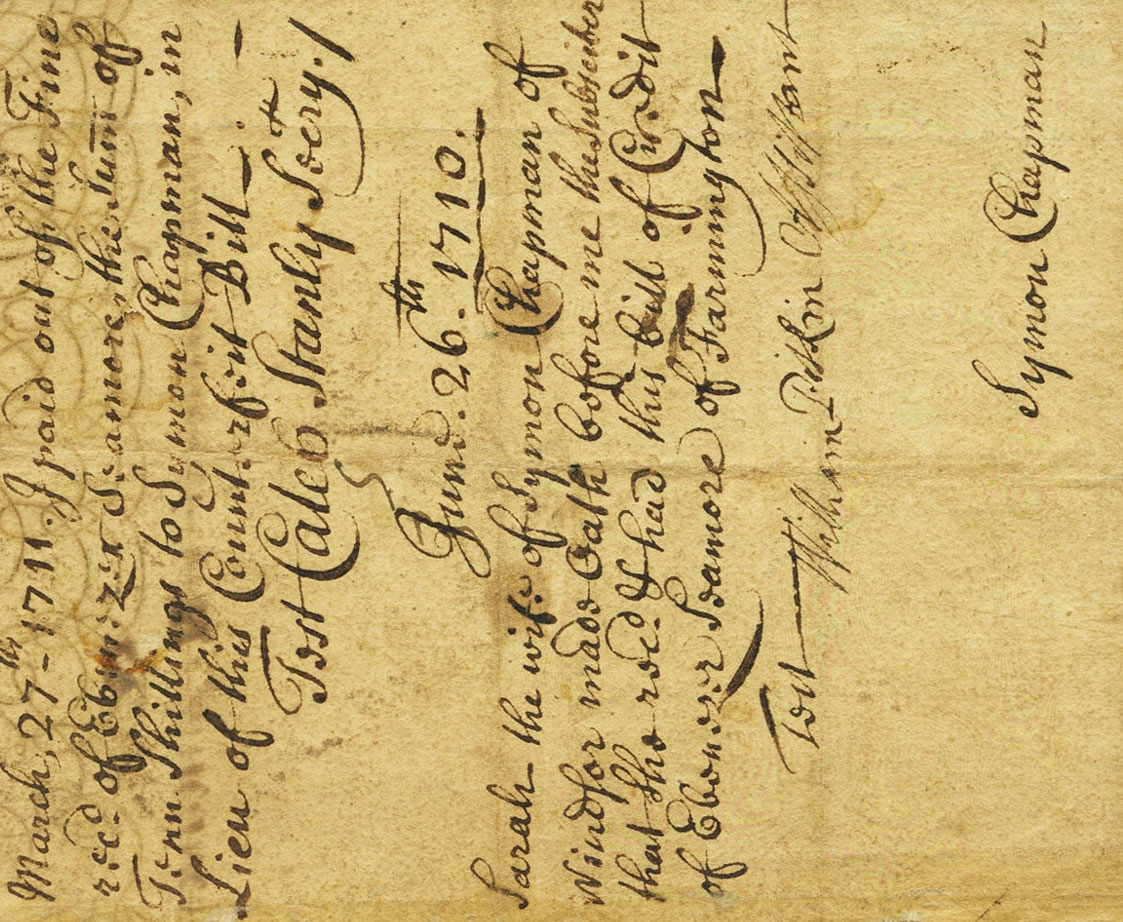 March, 27th - 1711. I paid out of the Fine
recd. of Ebenezer Seamore, the Sum of
Tenn Shillings to Symon Chapman, in
Lieu of this Counterfeit Bill —
Test Caleb Stanly Secry.
June. 26th. 1710.
Sarah the wife of Symon Chapman of
Windsor made Oath before me the Subscriber
that She recd. & had this bill of Credit
of Ebenezer Seamore of Farmington
Test William Pitkin Assistant
Symon Chapman